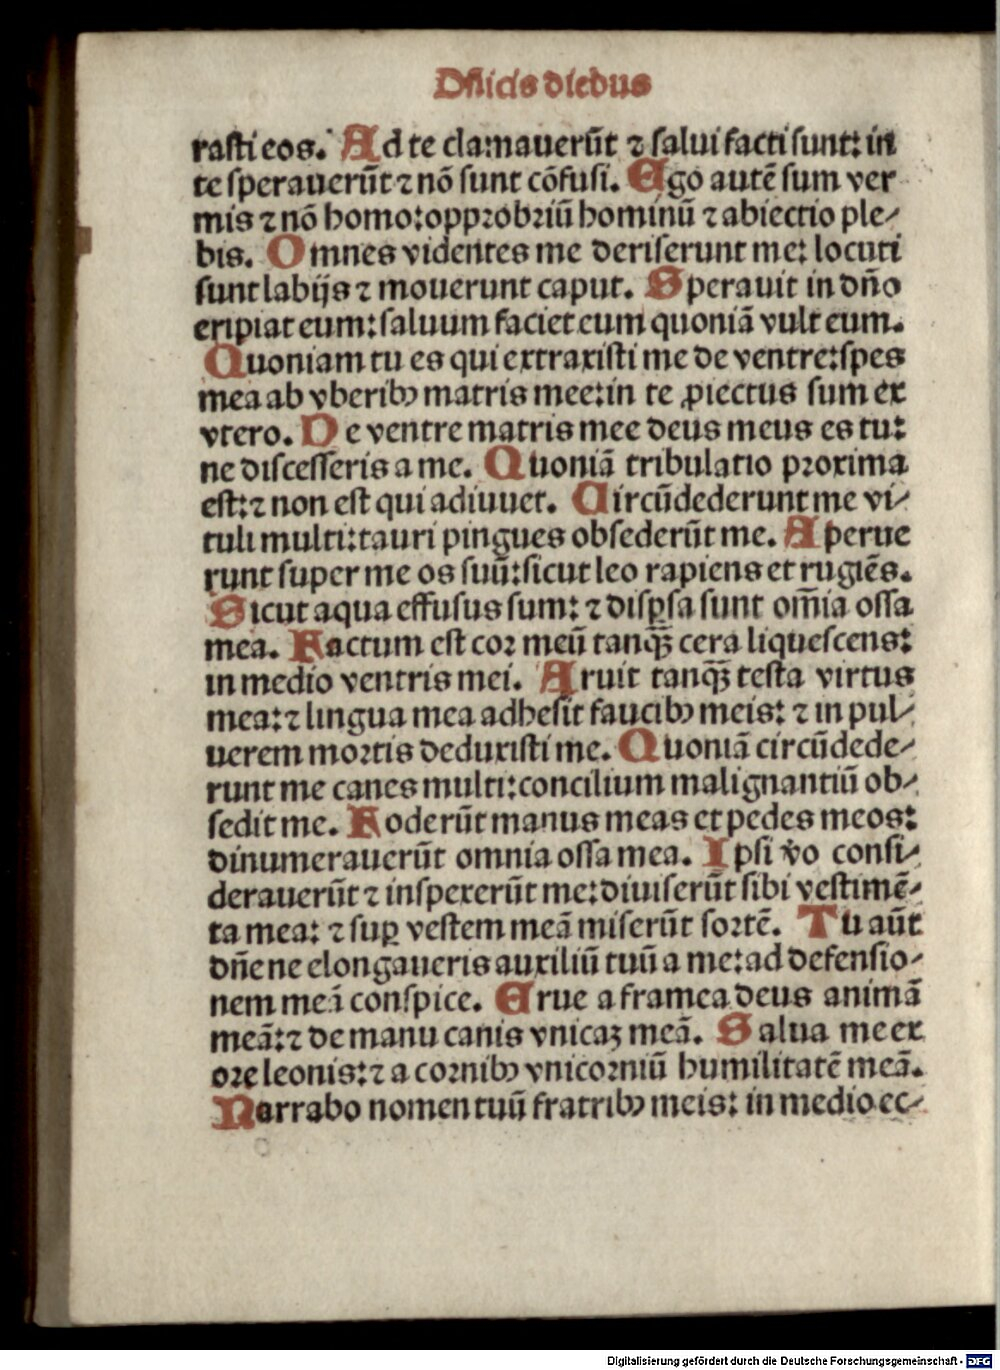 Dn̄icis diebus
rasti eos. Ad te clamauerūt ⁊ salui facti sunt: in
te sperauerūt ⁊ nō sunt cōfusi. Ego autē sum ver
mis ⁊ nō homo: opprobriū hominū ⁊ abiectio ple⸗
bis. Omnes videntes me deriserunt me: locuti
sunt labijs ⁊ mouerunt caput. Sperauit in dn̄o
eripiat eum: saluum faciet eum quoniā vult eum.
Quoniam tu es qui extraxisti me de ventre: spes
mea ab vberibꝰ matris mee: in te ꝓiectus sum ex
vtero. De ventre matris mee deus meus es tu:
ne discesseris a me. Quoniā tribulatio proxima
est: ⁊ non est qui adiuuet. Circūdederunt me vi⸗
tuli multi: tauri pingues obsederūt me. Aperue
runt super me os suū: sicut leo rapiens et rugiēs.
Sicut aqua effusus sum: ⁊ disꝑsa sunt om̄ia ossa
mea. Factum est cor meū tanqȝ̄ cera liquescens:
in medio ventris mei. Aruit tanqȝ̄ testa virtus
mea: ⁊ lingua mea adhesit faucibꝰ meis: ⁊ in pul⸗
uerem mortis deduxisti me. Quoniā circūdede⸗
runt me canes multi: concilium malignantiū ob⸗
sedit me. Foderūt manus meas et pedes meos:
dinumerauerūt omnia ossa mea. Ipsi v̄o consi⸗
derauerūt ⁊ inspexerūt me: diuiserūt sibi vestimē⸗
ta mea: ⁊ suꝑ vestem meā miserūt sortē. Tu aūt
dn̄e ne elongaueris auxiliū tuū a me: ad defensio⸗
nem meā conspice. Erue a framea deus animā
meā: ⁊ de manu canis vnicaȝ meā. Salua me ex
ore leonis: ⁊ a cornibꝰ vnicorniū humilitatē meā.
Narrabo nomen tuū fratribꝰ meis: in medio ec⸗
Digitalisierung gefördert durch die Deutsche Forschungsgemeinschaft - DFG